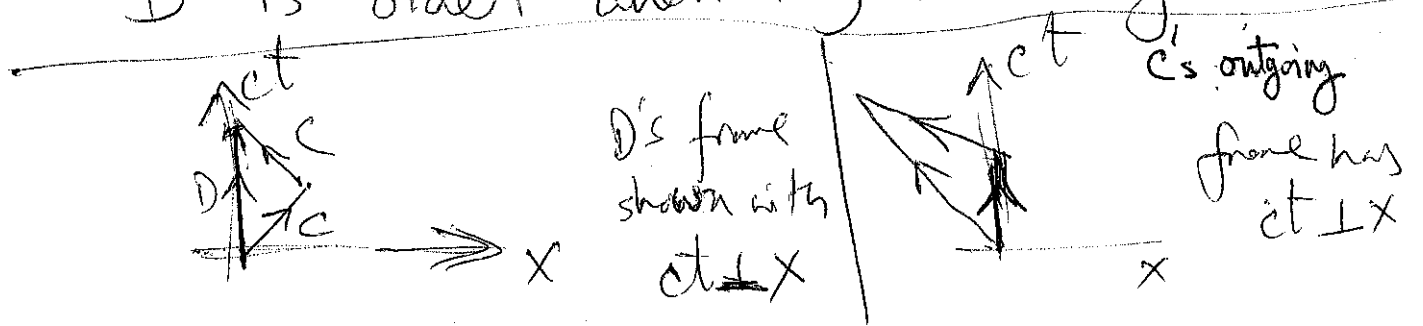 D is older when
ct
C
D
C
X
D's frame
shown with
ct ⊥ X
ct
X
C's outgoing
frame has
ct ⊥ X